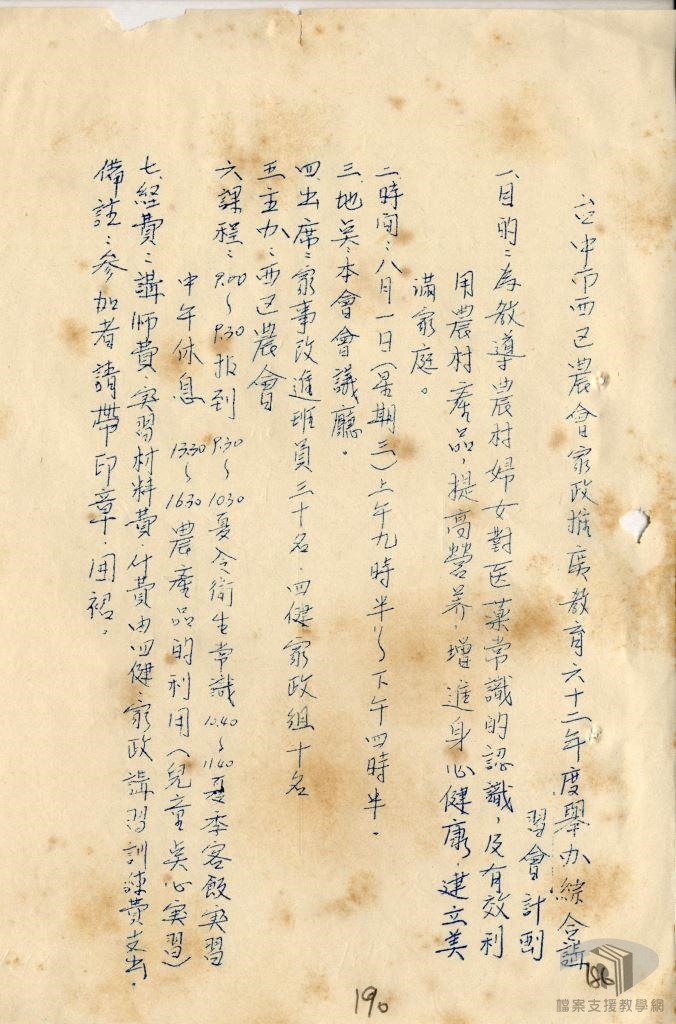 台中市西屯農會家政推廣教育六十二年度舉办綜合講
習會計劃
一、目的：為教導農村婦女對医藥常識的認識，及有效利
用農村產品，提高營养，增進身心健康，建立美
滿家庭。
二、時間：八月一日(星期三)上午九時半～下午四時半。
三、地点：本會會議廳。
四、出席：家事改進班員三十名，四健家政組十名
五、主办：西屯農會
六、課程：9.00～9.30報到 9.30～10.30夏令衛生常識 10.40～11.40夏季客飯实習
中午休息 13.30～16.30農產品的利用(兒童点心实習)
七、経費：講師費、实習材料費、什費由四健、家政講習訓練費支出。
備註：參加者請帶印章、围裙。
190
186
檔案支援教學網